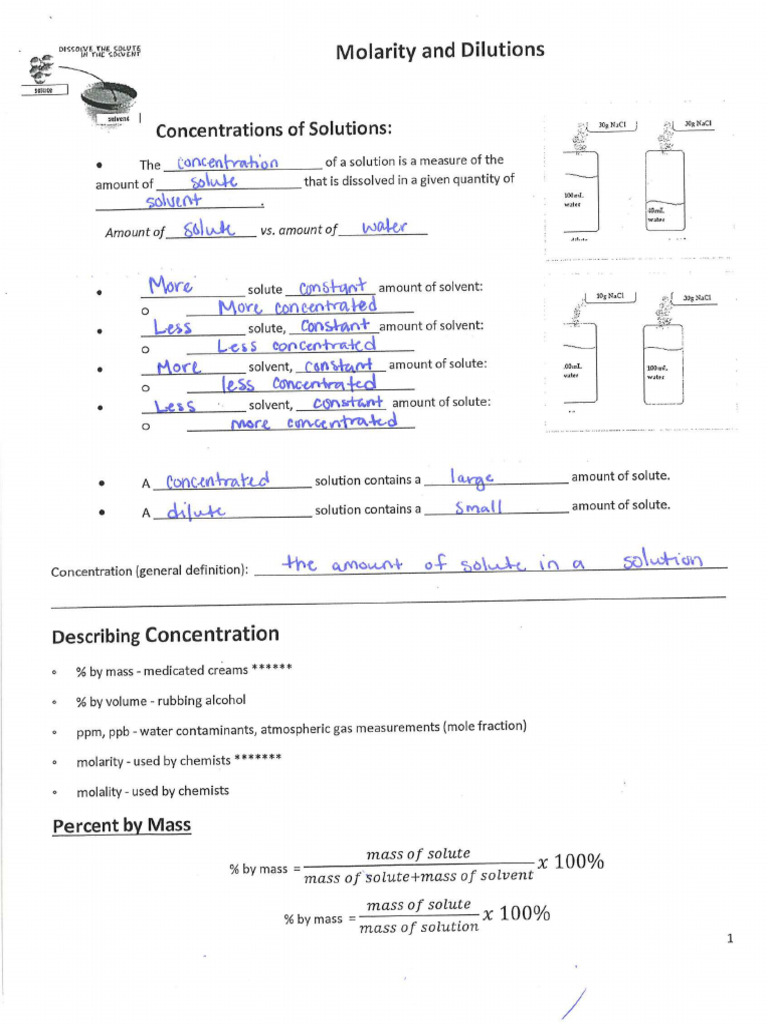 Molarity and Dilutions
DISSOLVE THE SOLUTE
IN THE SOLVENT
solute
solvent
Concentrations of Solutions:
• The concentration of a solution is a measure of the
amount of solute that is dissolved in a given quantity of
solvent.
Amount of solute vs. amount of water
30g NaCl
30g NaCl
100mL
water
40mL
water
• More solute constant amount of solvent:
o More concentrated
• Less solute, constant amount of solvent:
o Less concentrated
• More solvent, constant amount of solute:
o less concentrated
• Less solvent, constant amount of solute:
o more concentrated
10g NaCl
30g NaCl
00mL
water
100mL
water
• A concentrated solution contains a large amount of solute.
• A dilute solution contains a small amount of solute.
Concentration (general definition): the amount of solute in a solution
Describing Concentration
• % by mass - medicated creams ******
• % by volume - rubbing alcohol
• ppm, ppb - water contaminants, atmospheric gas measurements (mole fraction)
• molarity - used by chemists *******
• molality - used by chemists
Percent by Mass
% by mass = mass of solute / mass of solute+mass of solvent x 100%
% by mass = mass of solute / mass of solution x 100%
1